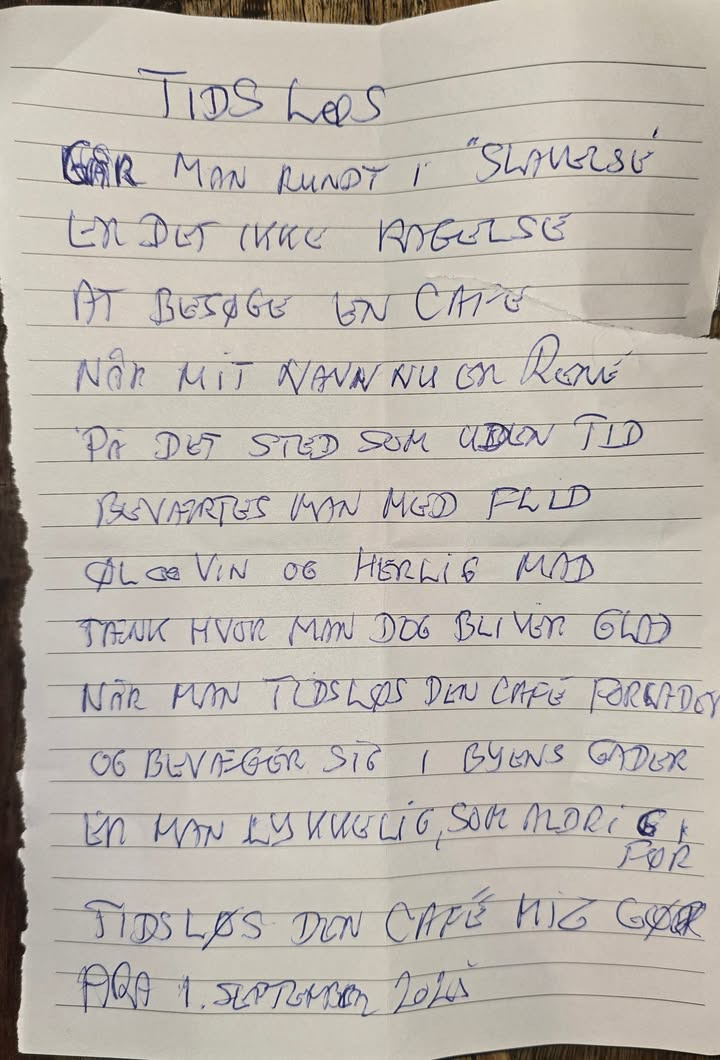 TIDSLØS
GÅR MAN RUNDT I "SLAUELSE"
ER DET IKKE RAGELSE
AT BESØGE EN CAFÉ
NÅR MIT NAVN NU ER RENÉ
PÅ DET STED SOM UDEN TID
BEVÆRTES MAN MED FLID
ØL OG VIN OG HERLIG MAD
TÆNK HVOR MAN DOG BLIVER GLAD
NÅR MAN TIDSLØS DEN CAFÉ FORLADER
OG BEVÆGER SIG I BYENS GADER
ER MAN LYKKELIG, SOM ALDRIG
FØR
TIDSLØS DEN CAFÉ MIG GØR
1. SEPTEMBER